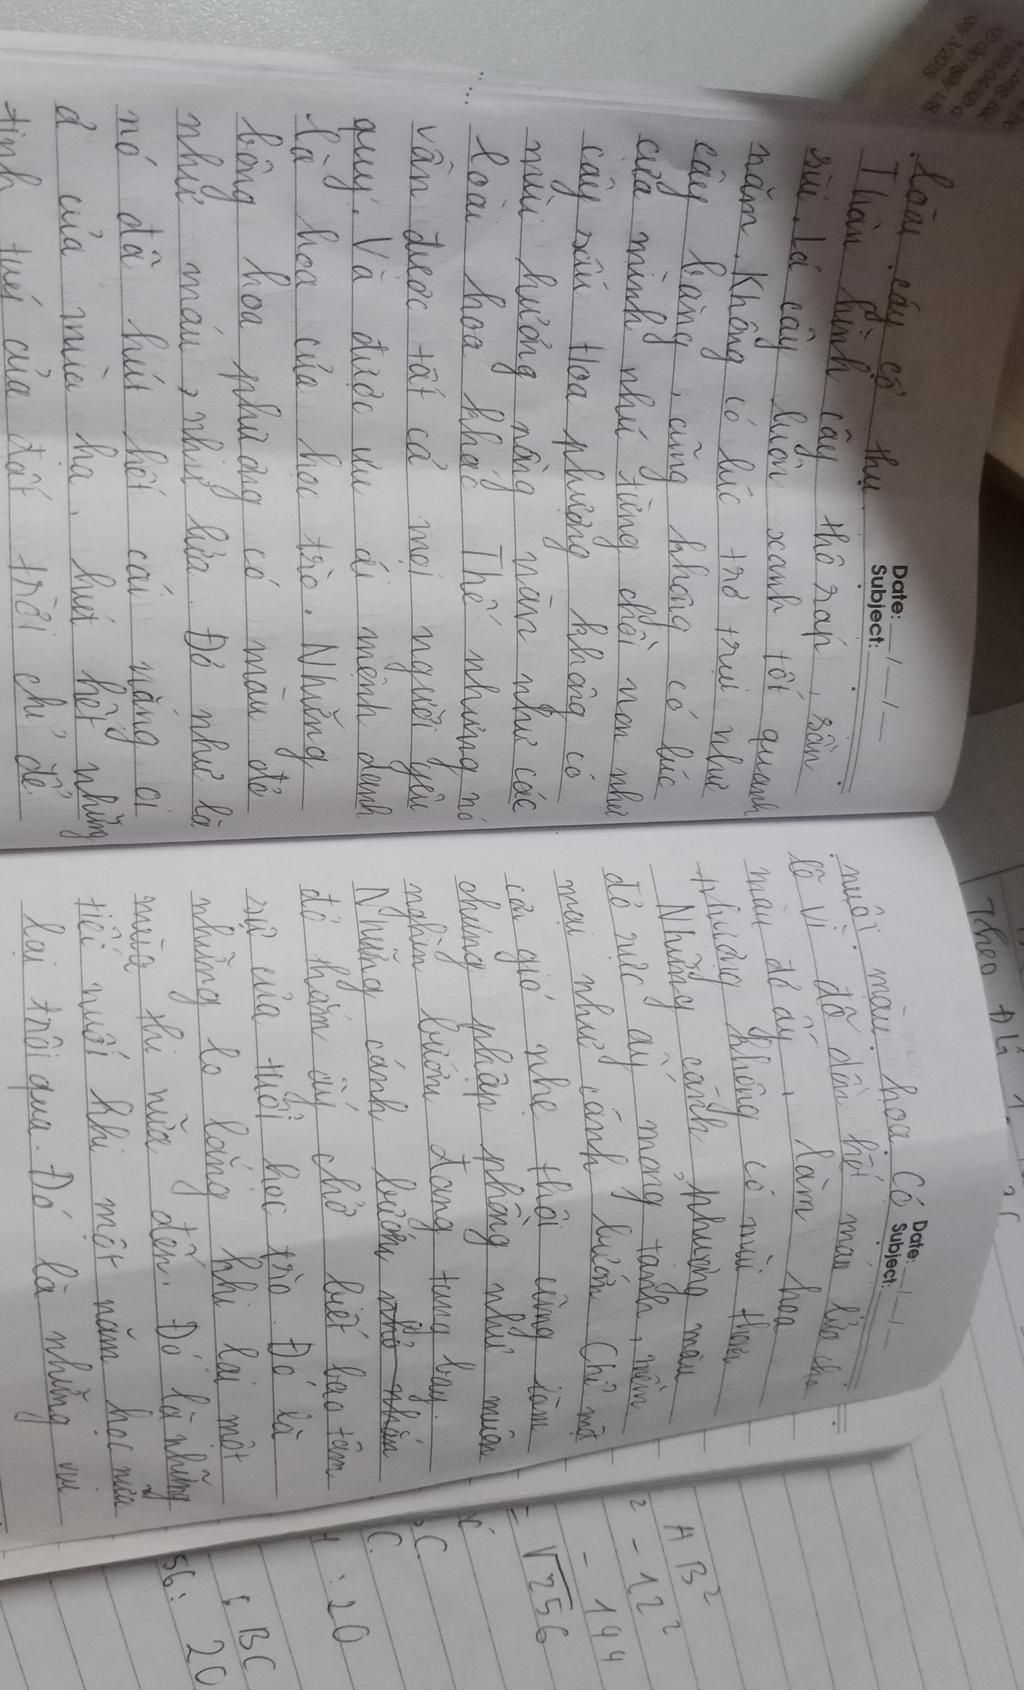 Date: _/_/_
Subject:
loài cây cổ thụ.
Thân hình cây thô ráp, sần
sùi. Lá cây luôn xanh tốt quanh
năm. Không có lúc trơ trụi như
cây bàng, cũng không có lúc
cựa mình nhú từng chồi non như
cây xấu Hoa phượng không có
mùi hương nồng nàn như các
loài hoa khác Thế nhưng nó
vẫn được tất cả mọi người yêu
quý. Và được ưu ái mệnh danh
là hoa của học trò. Những
bông hoa phượng có màu đỏ
như máu, như lửa. Đó như là
nó đã hút hết cái nắng oi
ả của mùa hạ, hút hết những
tinh tuý của đất trời chỉ để
Date: _/_/_
Subject:
nuôi màu hoa. Có
lẽ vì đỗ dồn hết màu lửa cho
màu đỏ ấy, làm hoa
phượng không có mùi thơm
Những cánh phượng màu
đỏ rực ấy mong manh, mềm
mại như cánh bướm Chỉ một
cơn gió nhẹ thôi cũng làm
chúng phập phồng như muôn
nghìn bướm đang tung bay.
Những cánh bướm
đỏ thắm ấy chở biết bao tâm
sự của tuổi học trò. Đó là
những lo lắng khi lại một
mùa thi nữa đến. Đó là những
tiếc nuối khi một năm học nữa
lại trôi qua. Đó là những vui
Theo
AB²
² - 12²
- 144
= √256
: 20
C.
C
: BC
56: 20